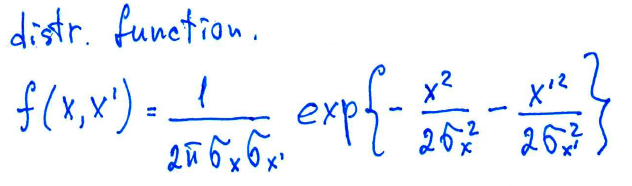 distr. function.
f(x,x') = 1/(2π σ_x σ_x') exp{- x²/(2σ_x²) - x'²/(2σ_x'²)}